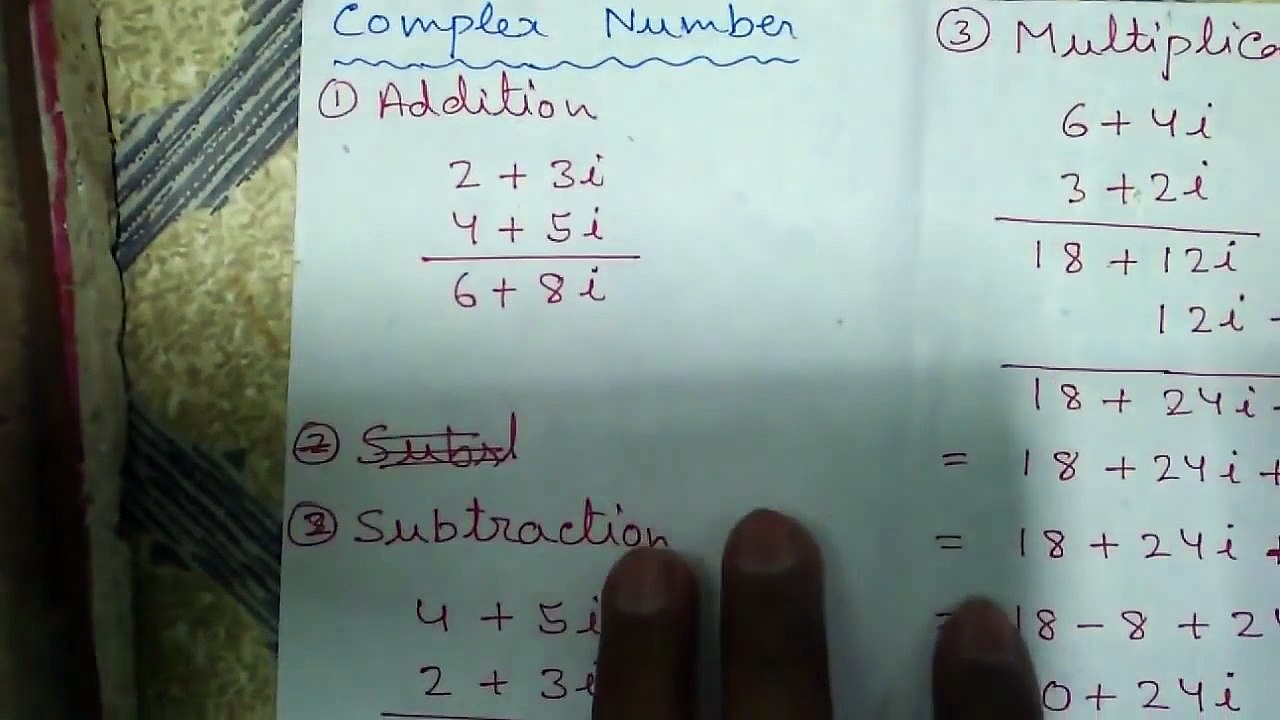 Complex Number
① Addition
2 + 3i
4 + 5i
6 + 8i
② Subtraction
4 + 5i
2 + 3i
③ Multiplica
6 + 4i
3 + 2i
18 + 12i
12i
18 + 24i
= 18 + 24i +
= 18 + 24i +
= 18 - 8 + 2
0 + 24i